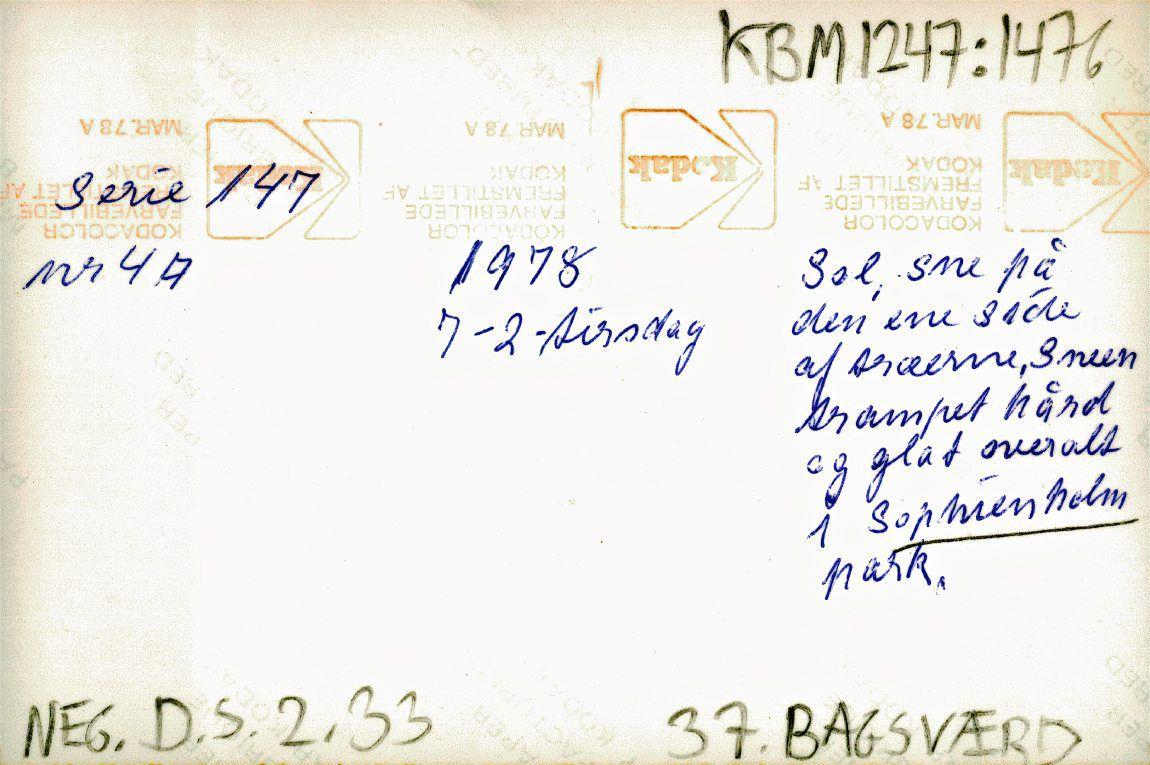 KBM1247:1476
MAR.78 A
KODAK
FREMSTILLET AF
FARVEBILLEDE
KODACOLOR
Kodak
MAR.78 A
KODAK
FREMSTILLET AF
FARVEBILLEDE
KODACOLOR
Kodak
MAR.78 A
KODAK
FREMSTILLET AF
FARVEBILLEDE
KODACOLOR
Kodak
Serie 147
nr 47
1978
7-2-tirsdag
Sol, sne på
den ene side
af træerne, Sneen
trampet hård
og glat overalt
i Sophienholm
park.
NEG. D.S. 2.33
37. BAGSVÆRD